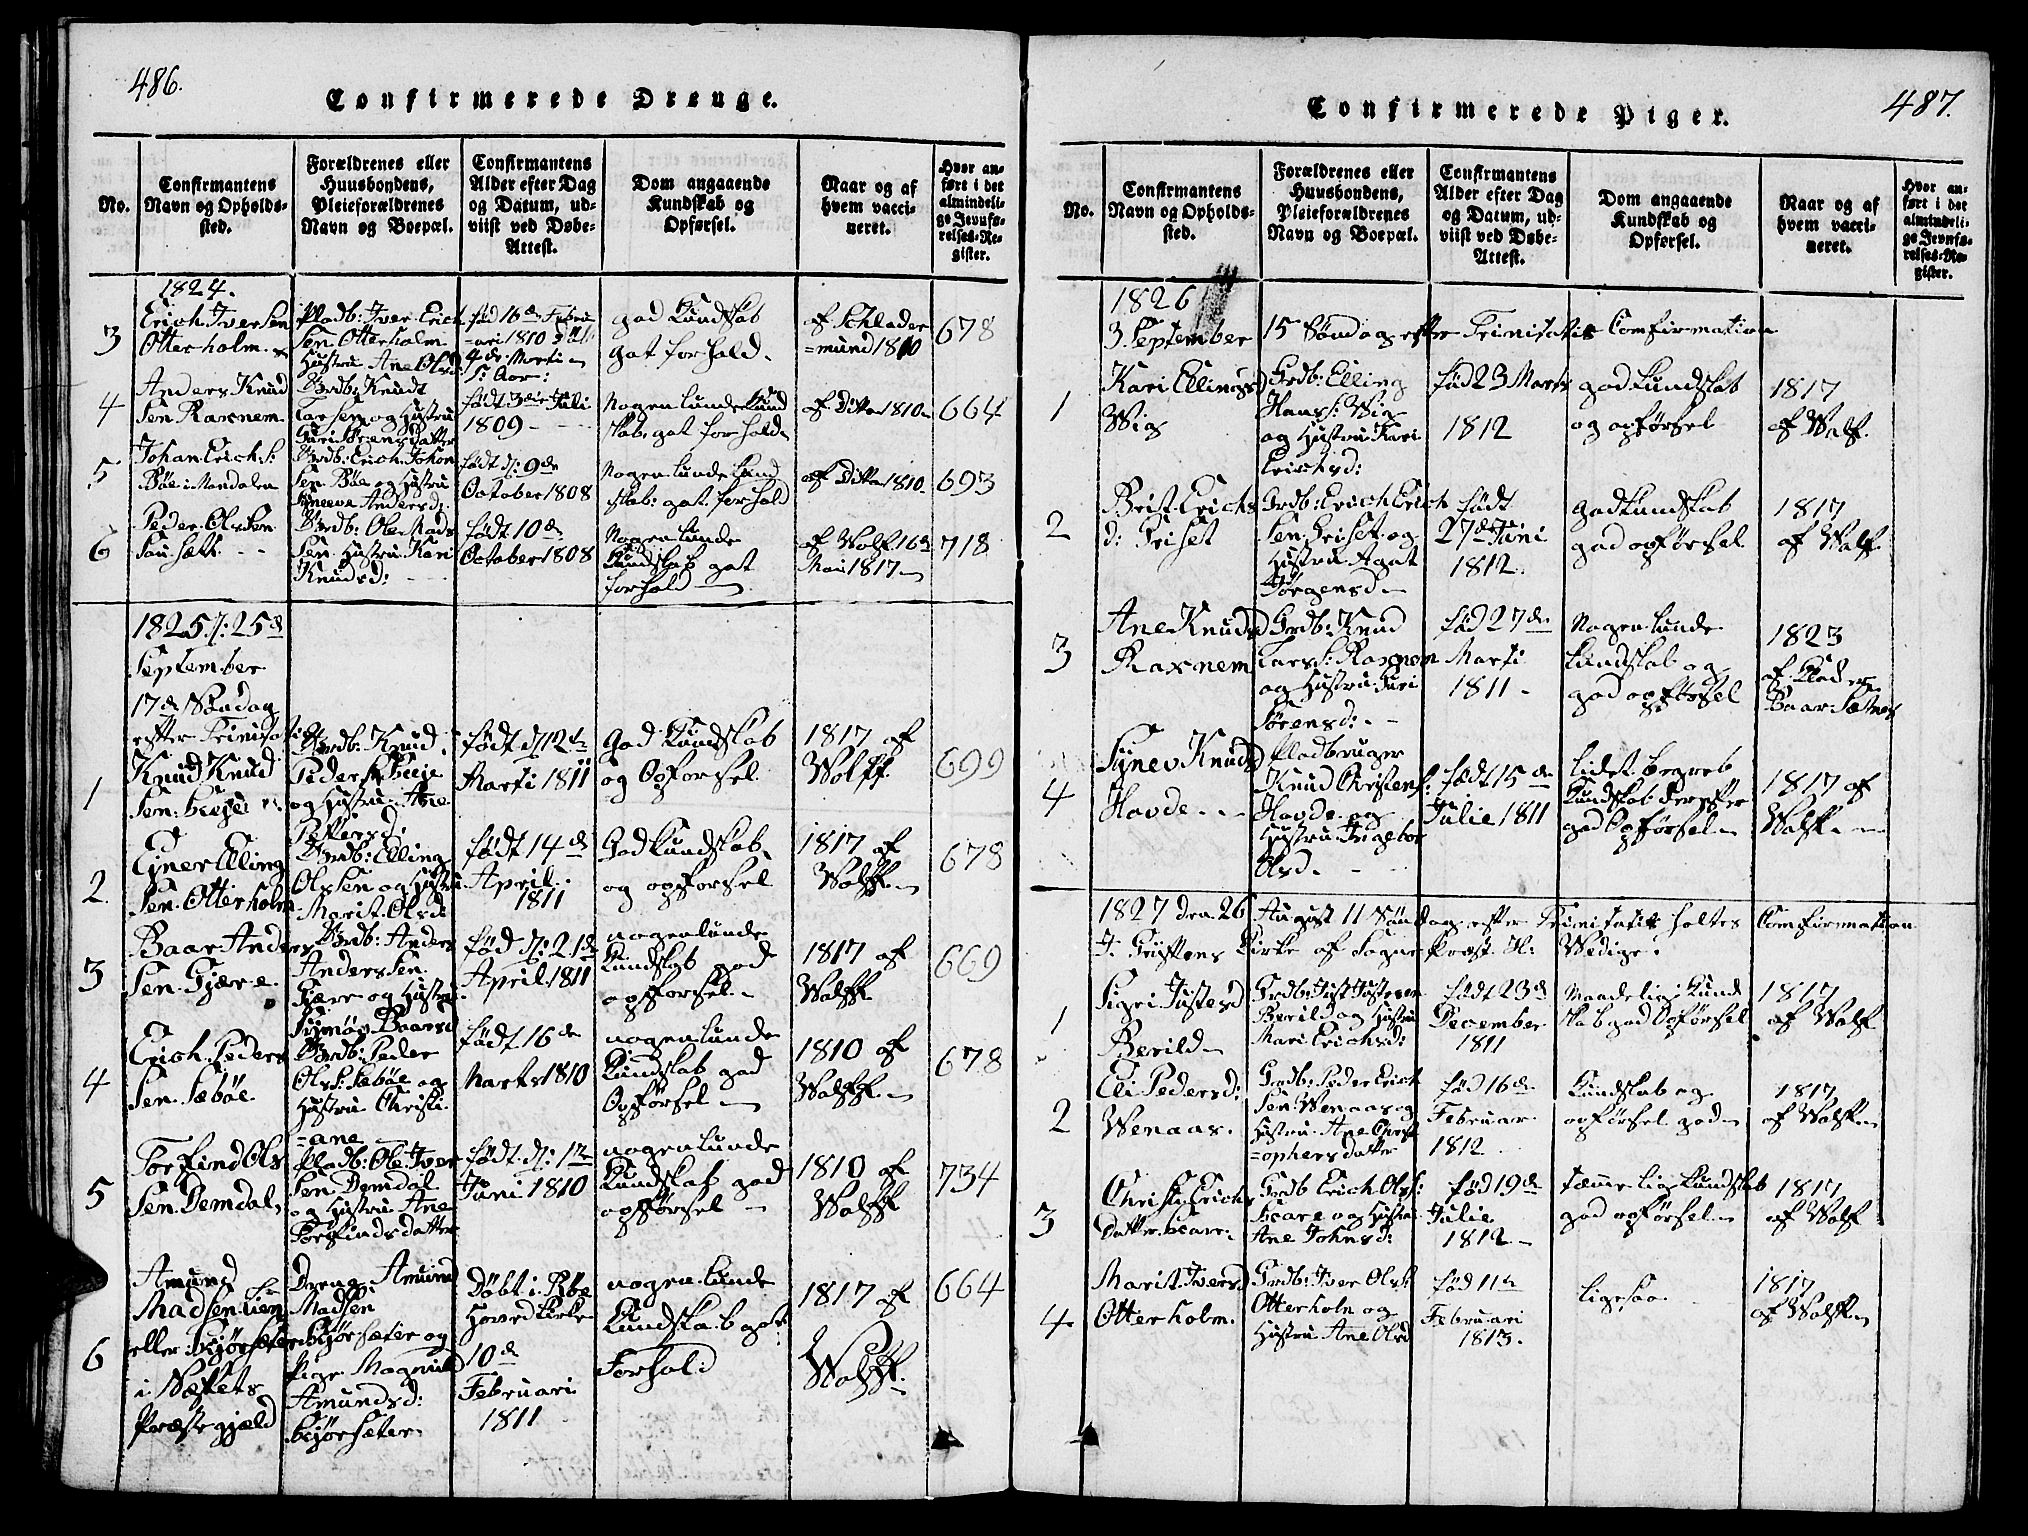 486.
Confirmerede Drenge.
No.
Confirmantens
Navn og Opholds-
sted.
Forældrenes eller
Huusbondens,
Pleieforældrenes
Navn og Boepæl.
Confirmantens
Alder efter Dag
og Datum, ud-
viist ved Døbe-
Attest.
Dom angaaende
Kundskab og
Opførsel.
Naar og af
hvem vacci-
neret.
Hvor an-
ført i det
almindeli-
ge Jevnfø-
relses-Re-
gister.
1824.
3
Erich Iversen
Otterholm
Pladb: Iver Erich
Sen Otterholm
Hustru Ane Olsd
fød 16de Febru
=ari 1810
god Kundskab
got forhold.
af Schlader
=mund 1810
678
4
Anders Knud
Sen Raxnem
Grdb: Knudt
Larsen og Hustru
Guri Sørensdatter
født 3die Juli
1809
Nogenlunde Kund
skab got forhold
af Ditto 1810
664
5
Johan Erich:s:
Bøe i Mandalen
Grdb: Erich Johan
Sen Bøe og Hustru
Andersd:
født d: 9de
October 1808
Nogenlunde Kund
skab: got forhold
af Ditto 1810
693
6
Peder Olsen
Grdb: Ole Mads
Sen Hustru Kari
Knudsd:
født 10de
October 1808
Nogenlunde
Kundskab got
forhold
af Wolf 16
Mai 1817
718
1825 d: 25de
September
17de Søndag
efter Trinitatis
1
Knud Knud
Sen
Grdb: Knud
Peders
og Hustru Ane
Pettersd:
født d 12te
Marti 1811
God Kundskab
og Opførsel
1817 af
Wolff.
699
2
Ejner Elling
Sen Otterholm
Grdb: Elling
Olsen og Hustru
Marit Olsd:
født 14de
April
1811
God Kundskab
og opførsel
1817 af
Wolff
678
3
Baar Anders
Sen Gjære
Grdb: Anders
Andersen
Gjære og Hustru
Baarsd
fød d: 21de
April 1811
nogenlunde
Kundskab god
opførsel
1817 af
Wolff
669
4
Erich Peders
Sen Sæbøe
Grdb: Peder
Ols: Sæbøe og
Hustru Christi
=ane
født 16de
Marts 1810
nogenlunde
Kundskab god
Opførsel
1810 af
Wolff
678
5
Torfind Ols
Sen Demdal
Pladb: Ole Iver
Sen Demdal
og Hustru Ane
Torfindsdatter
født d: 1te
Juni 1810
nogenlunde
Kundskab god
opførsel
1810 af
Wolff
734
6
Amund
Madsen Lien
eller Bjørsæter
i Næssets
Præstegjæld
Dreng Amund
Madsen
Bjørsæter og
Pige Magnild
Amundsd:
Bjørsæter
Døbt i
Hovedkirke
10de
Februari
1811
nogenlunde
Kundskab got
Forhold
1817 af
Wolff.
664
487.
Confirmerede Piger.
No.
Confirmantens
Navn og Opholds-
sted.
Forældrenes eller
Huusbondens,
Pleieforældrenes
Navn og Boepæl.
Confirmantens
Alder efter Dag
og Datum, ud-
viist ved Døbe-
Attest.
Dom angaaende
Kundskab og
Opførsel.
Naar og af
hvem vacci-
neret.
Hvor an-
ført i det
almindeli-
ge Jevnfø-
relses-Re-
gister.
1826
3 September 15 Søndag efter Trinitatis Comfirmation
1
Kari Ellingsd
Wig
Grdb: Elling
Hans: Wig
og Hustru Kari
Erichsd:
fød 23 Marts
1812
god kundskab
og opførsel
1817
af Wolf.
2
Brit Erichs
d: Griset
Grdb: Erich Erich
Sen Griset og
Hustru Agat
Jørgensd
født
27de Juni
1812.
god kundskab
god opførsel
1817
af Wolf.
3
Ane Knudsd
Raxnem
Grdb: Knud
Lars: Raxnem
og Hustru Guri
Sørensd:
fød 27de
Marti
1811
Nogenlunde
kundskab og
god opførsel
1823
af
Baar Sætnes
4
Synev Knudsd
Hovde
Pladbruger
Knud Christens:
Hovde og
Hustru Ingebor
Olsd.
født 15de
Julie 1811
lidet begreb
Kundskab derefter
god Opførsel
1817 af
Wolff
1827 den 26 August 11 Søndag efter Trinitatis holtes Comfirmation
I Gryttens Kirke af Sogne Præst H: Wedige.
1
Sigri Justesd
Berild
Grdb: Just Justesen
Berild og Hustru
Mari Erichsd:
født 23de
December
1811
Maadelig Kund
skab god Opførsel
1817
af Wolf
2
Eli Pedersd:
Wenaas.
Grdb: Peder Erich
Sen Wenaas og
Hustru Ane Christ
=ophersdatter
fød 16de
Februar
1812
Kundskab og
opførsel god
1817
af Wolf
3
Christi Erichs
Datter
Grdb Erich Ols:
og Hustru
Ane Johnsd:
fød 19de
Julie
1812
temmelig kundskab
god opførsel
1817
af Wolf
4
Marit Iversd
Otterholm.
Grdb: Iver Ols:
Otterholm og
Hustru Ane Olsd
fød 11te
Februari
1813.
ligesaa
1817
af Wolf